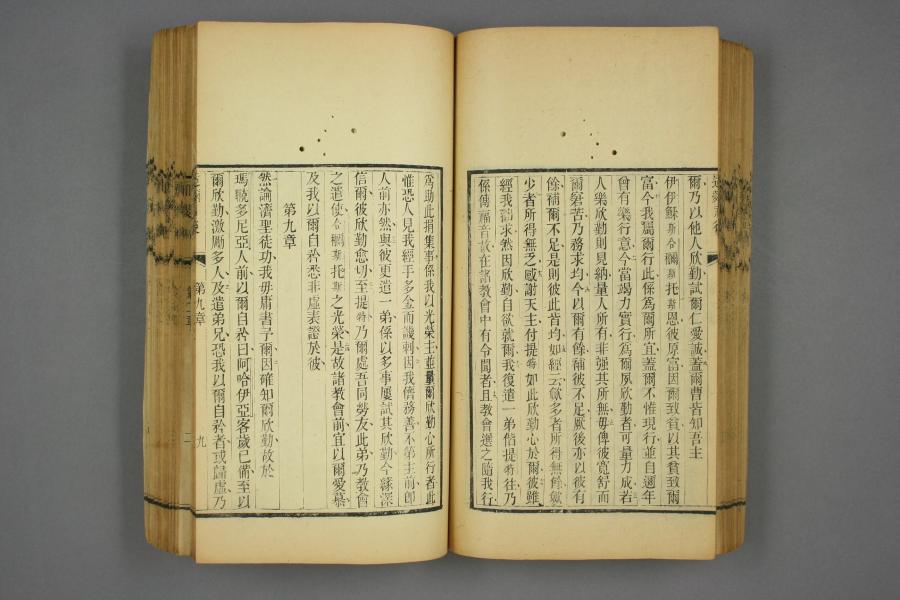 爾乃以他人欣勤試爾仁愛誠蓋爾曹皆知吾主
伊伊穌斯合爾斯托斯恩彼原富因爾致貧以其貧致爾
富今我囑爾行此係為爾所宜蓋爾不惟現行並自週年
曾有樂行意今當竭力實行為爾夙欣勤者可量力成若
人樂欣勤則見納量人所有非强其所無毋俾彼寬舒而
爾窘苦乃務求均今以爾有餘補彼不足厥後亦以彼有
餘補爾不足是則彼此皆均如經云斂多者所得無餘斂
少者所得無乏感謝天主付提特如此欣勤心於爾彼雖
經我諄求然因欣勤自欲就爾我復遣一弟偕提特往乃
係傳福音故在諸教會中有令聞者且教會選之隨我行
為助此捐集事係我以光榮主並量爾欣勤心所行者此
惟恐人見我經手多金而譏刺因我儕務善不第主前卽
人前亦然與彼更遣一弟係以多事屢試其欣勤今緣深
信爾彼欣勤愈切至提特乃爾處吾同勞友此弟乃教會
之遣使合爾斯托斯之光榮是故諸教會前宜以爾愛慕
及我以爾自矜悉非虛表證於彼
第九章
然論濟聖徒功我毋庸書予爾因確知爾欣勤故於
瑪曉多尼亞人前以爾自矜曰阿哈伊亞客歲已備至以
爾欣勤激厲多人及遣弟兄恐我以爾自矜者或歸虛乃
第九章
九